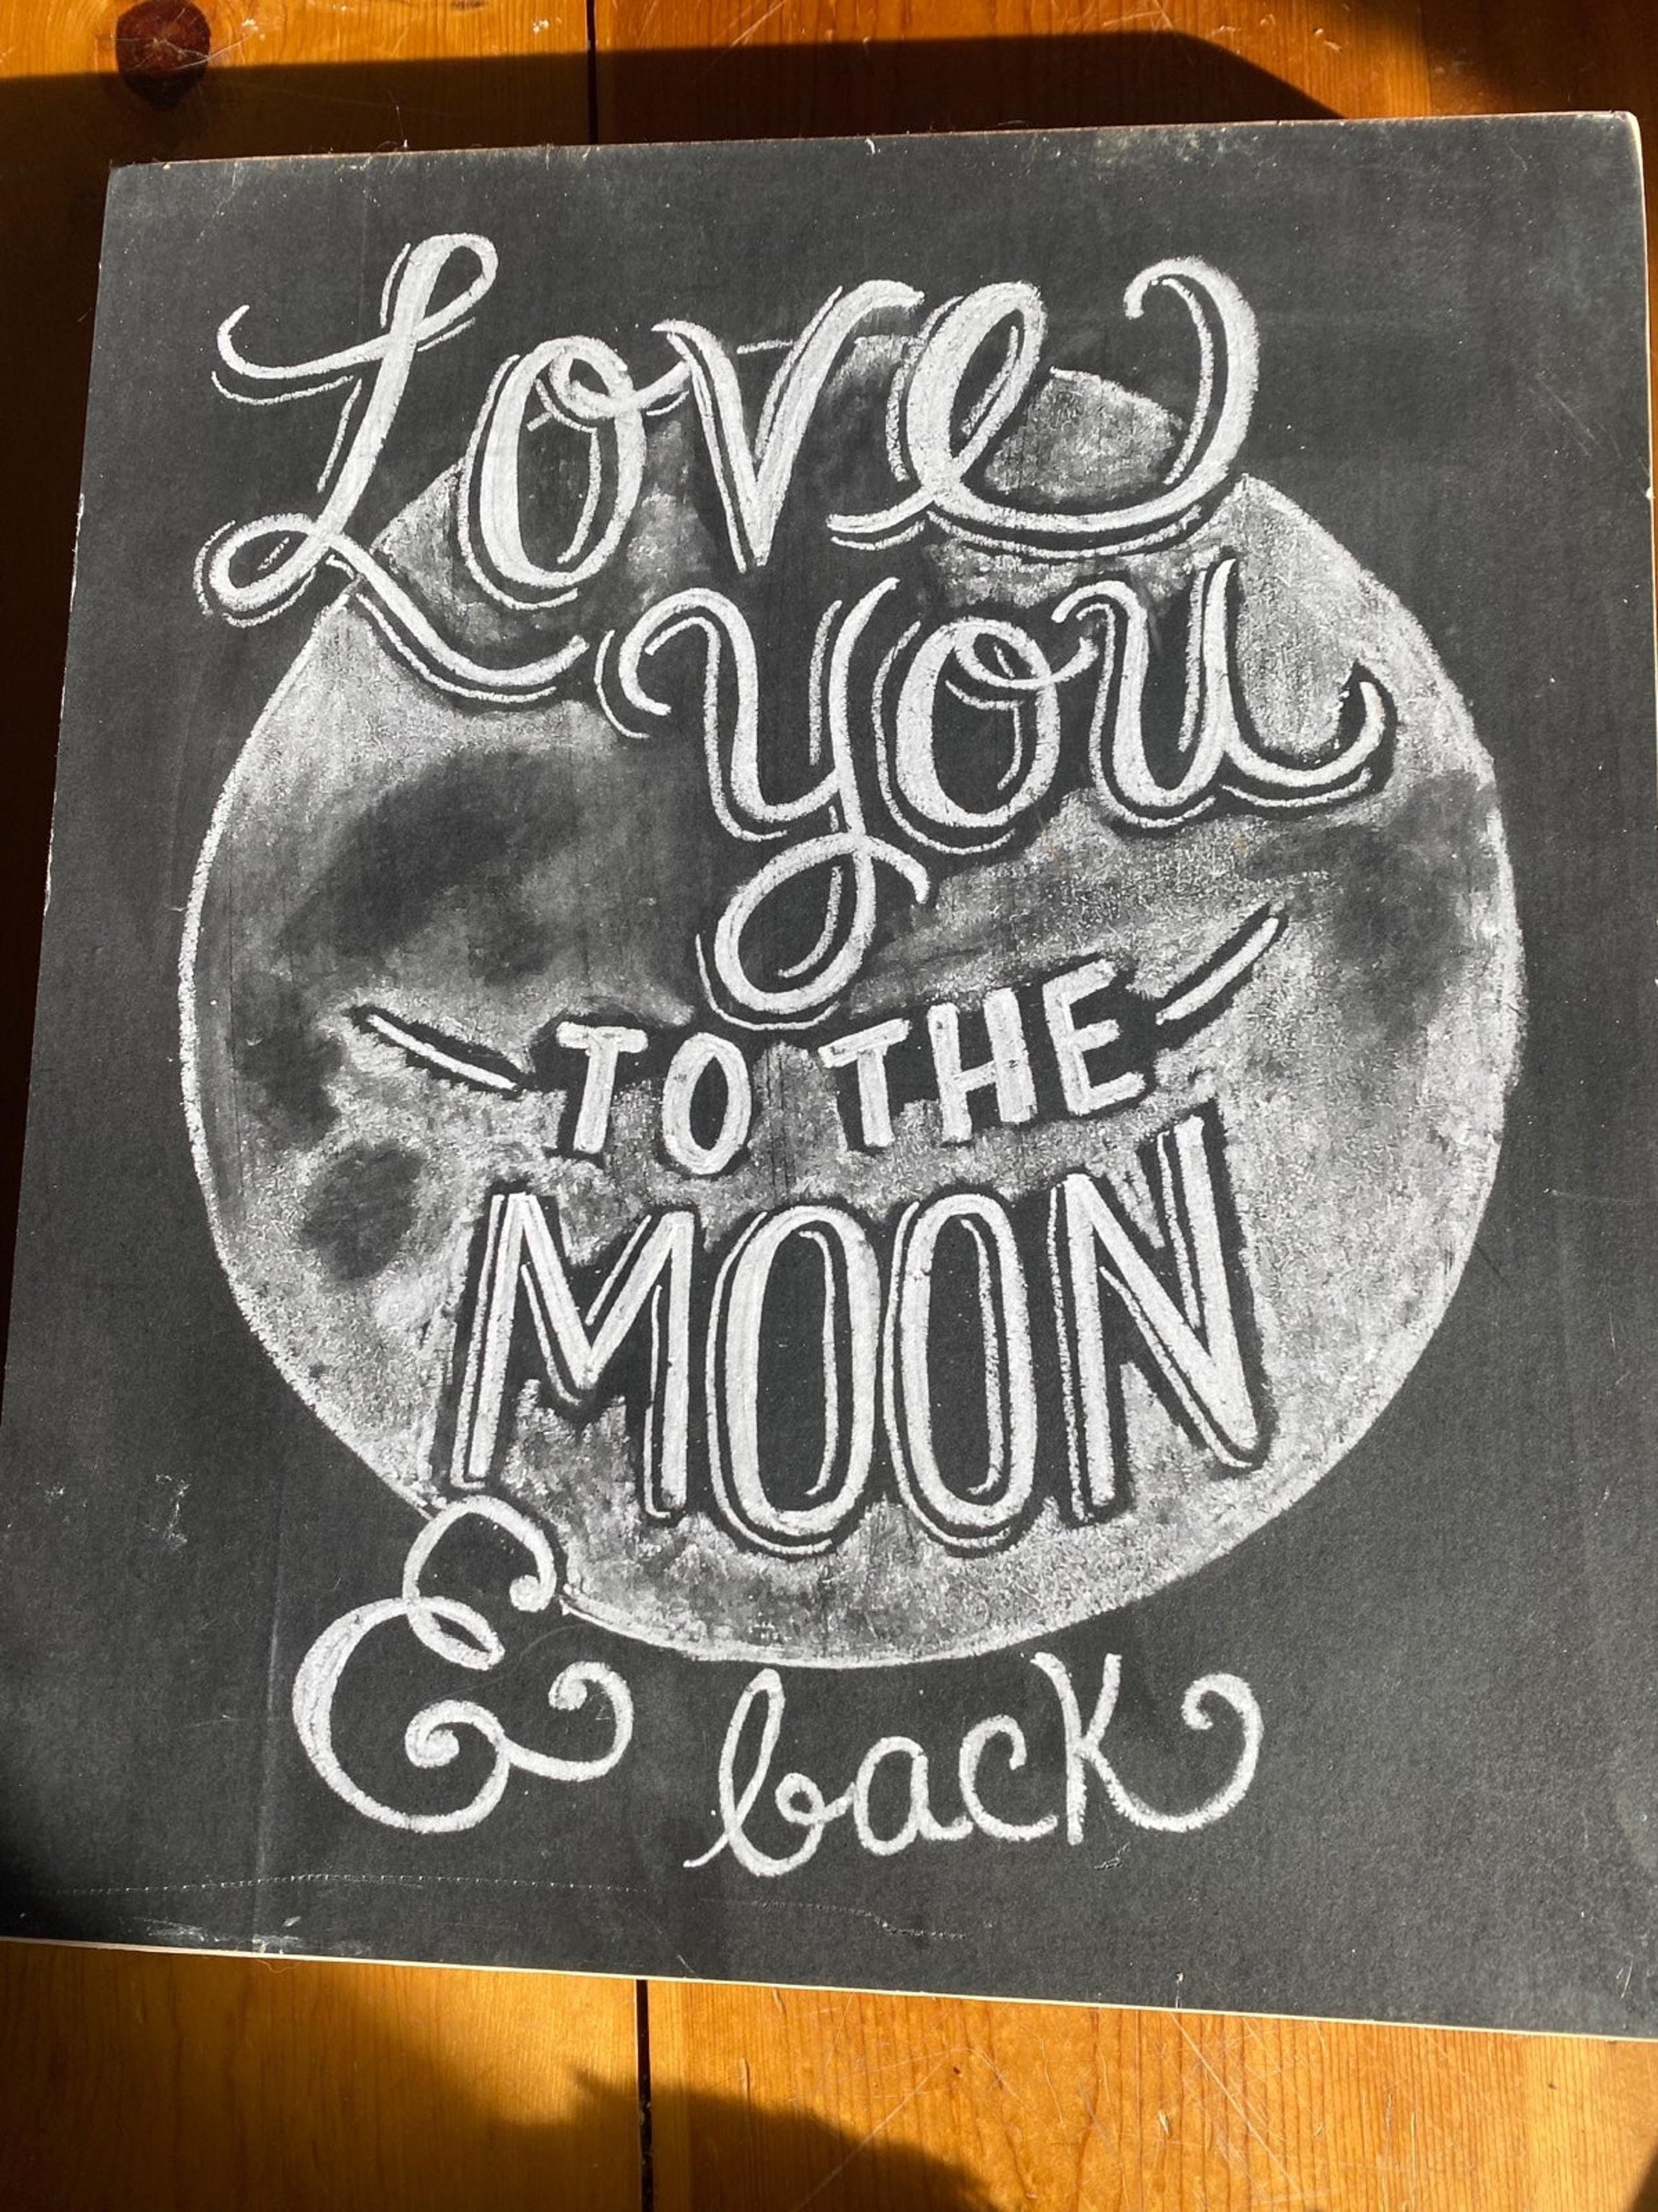 Love
you
- TO THE -
MOON
& back